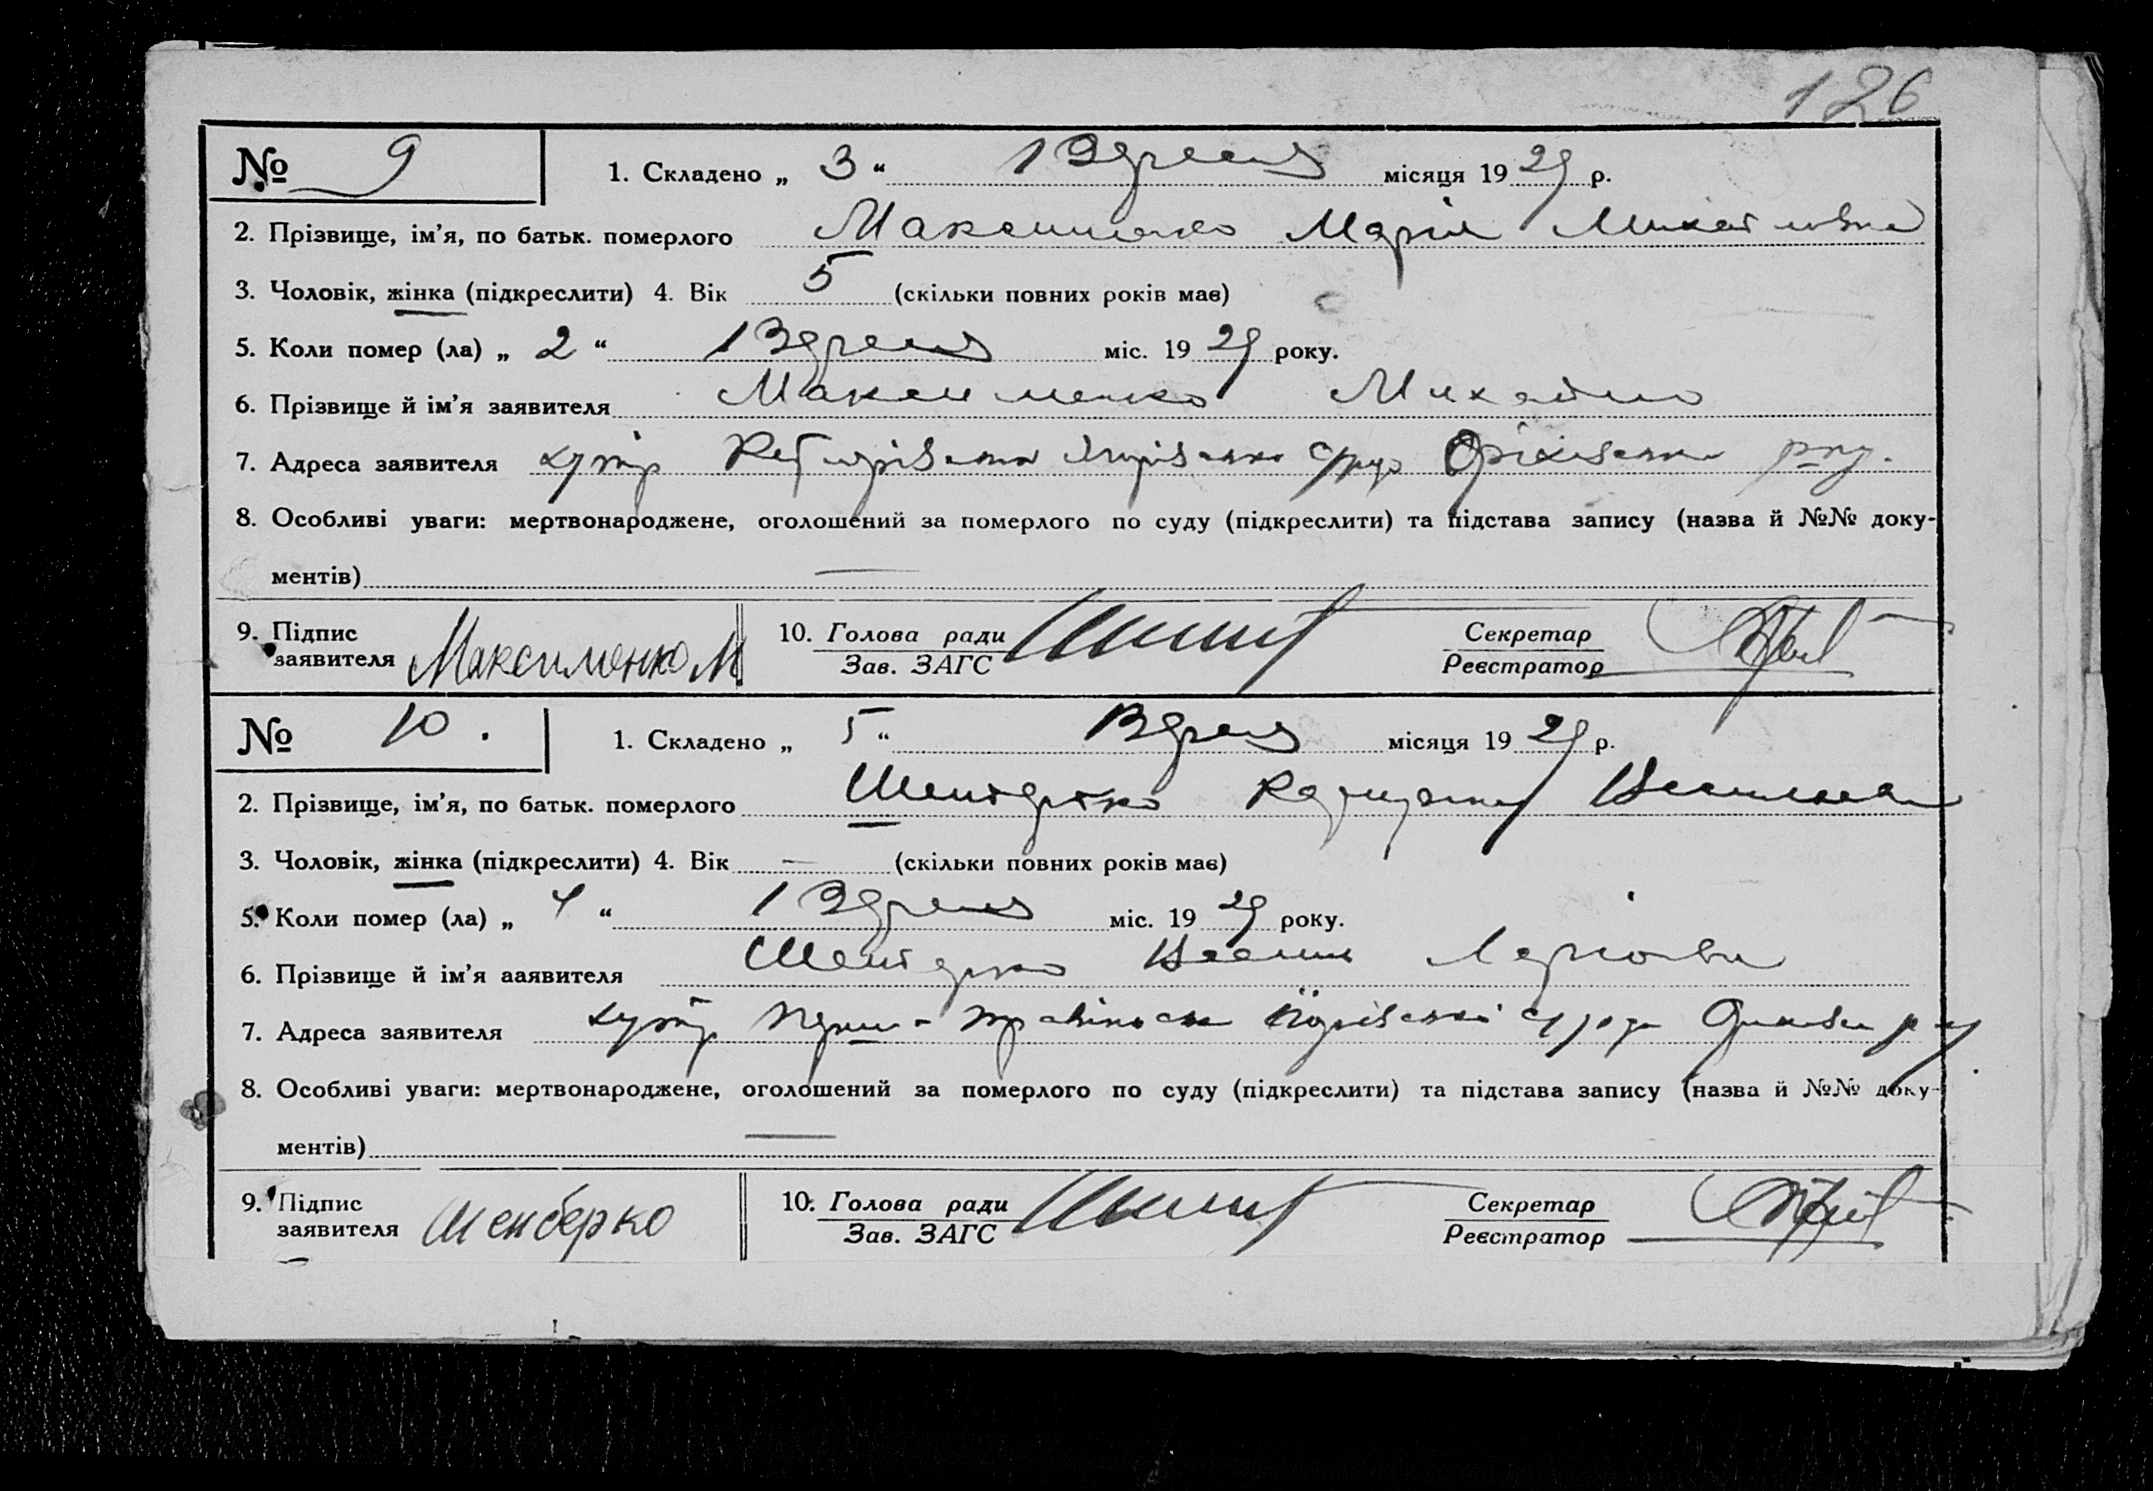 126
№ 9 1. Складено „ 3 “ Вересня місяця 19 29 р.
2. Прізвище, ім’я, по батьк. померлого Максименко Марія Михайлівна
3. Чоловік, жінка (підкреслити) 4. Вік 5 (скільки повних років має)
5. Коли помер (ла) „ 2 “ Вересня міс. 19 29 року.
6. Прізвище й ім’я заявителя Максименко Михайло
7. Адреса заявителя хутір Оріхівськ р-ну.
8. Особливі уваги: мертвонароджене, оголошений за померлого по суду (підкреслити) та підстава запису (назва й №№ доку-
ментів)
9. Підпис 10. Голова ради Секретар
заявителя Максименко М Зав. ЗАГС Реєстратор
№ 10. 1. Складено „ 5 “ Вересня місяця 19 29 р.
2. Прізвище, ім’я, по батьк. померлого
3. Чоловік, жінка (підкреслити) 4. Вік — (скільки повних років має)
5. Коли помер (ла) „ 4 “ Вересня міс. 19 29 року.
6. Прізвище й ім’я ааявителя
7. Адреса заявителя хутір
8. Особливі уваги: мертвонароджене, оголошений за померлого по суду (підкреслити) та підстава запису (назва й №№ доку-
ментів)
9. Підпис 10. Голова ради Секретар
заявителя Зав. ЗАГС Реєстратор